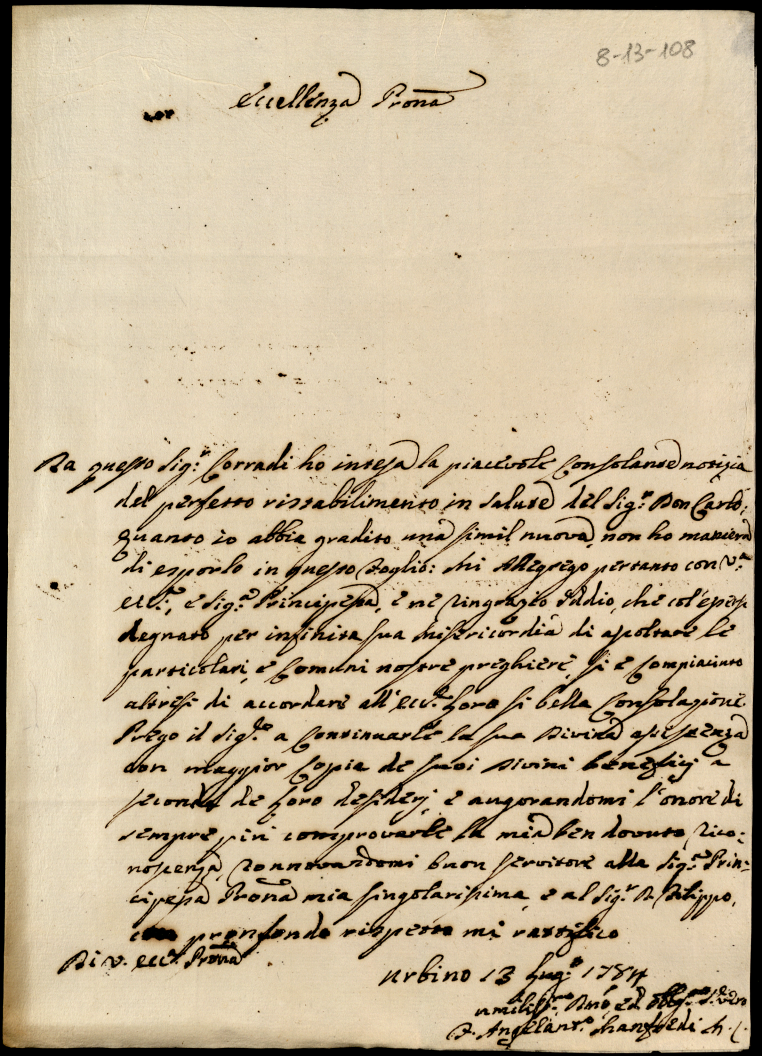 8-13-108
Eccellenza Prona
Da questo Sig.r Corradi ho intesa la piacevole Consolante notizia
del perfetto ristabilimento in salute del Sig.r Don Carlo;
quanto io abbia gradito una simil nuova, non ho maniera
di esporlo in questo Foglio: Mi Allegrego pertanto con V.a
ecc.a, e Sig.a Principessa, e ne ringrazio Iddio, che col'essersi
degnato per infinita sua Misericordia di ascoltare le
particolari, e Comuni nostre preghiere, si è Compiaciuto
altresì di accordare all'ecc.e Loro si bella Consolazione.
Prego il Sig.re a Continuarle la sua Divina assistenza
con maggior Copia de suoi Divini benefizj a
seconda de Loro desiderj, e augorandomi l'onore di
sempre più comprovarle la mia ben dovuta Rico=
noscenza, rinnovandomi buon servitore alla Sig.ra Prin=
cipessa Prona mia singolarissima, e al Sig.r D. Filippo,
con profondo rispetto mi ratifico
Di V. ecc.a Prona
Urbino 13 Lug.o 1784
umiliss.mo Dmo, ed obbl.mo
D. Angelant.o Manfredi